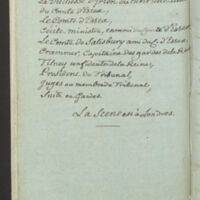 La Duchesse
du Comte d'Essex
Le Comte d'Essex
Cecile, ministre, ennemi du Comte d'Essex
Le Comte de Salsbury ami du C. d'Essex
Crammer, Capitaine des gardes de la Reine
Tilney confidente de la Reine
Président du Tribunal
Juges ou membres du Tribunal
Suite et Gardes.
La Scene est à Londres.